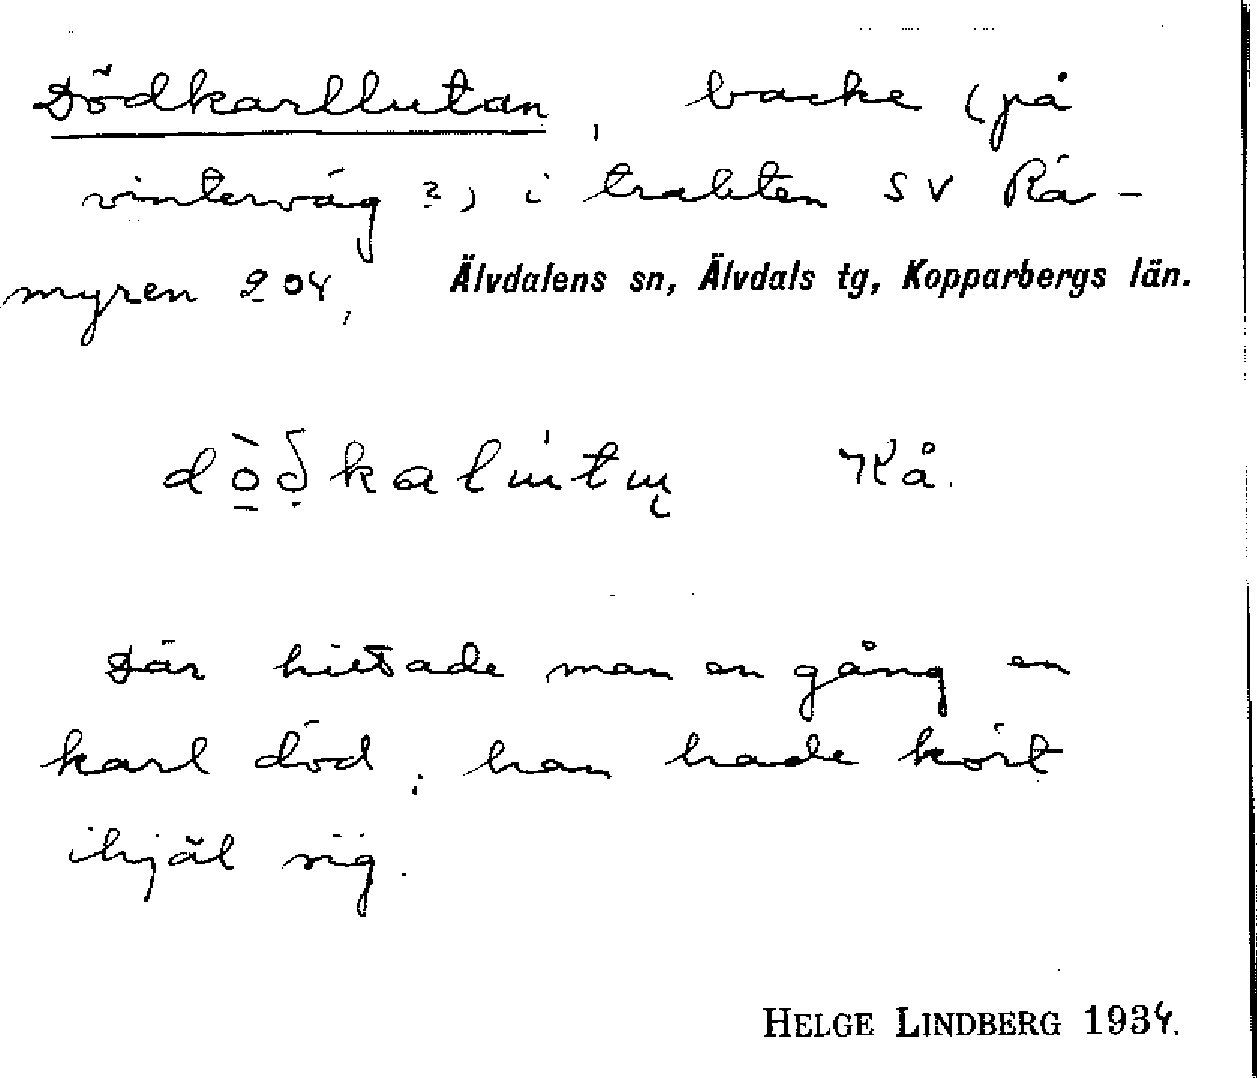 Dödkarllutan, backe (på
vinterväg ?) i trakten SV Rå-
myren 204, Älvdalens sn, Älvdals tg, Kopparbergs län.
Kå.
Där hittade man en gång en
karl död; han hade kört
ihjäl sig.
HELGE LINDBERG 1934.